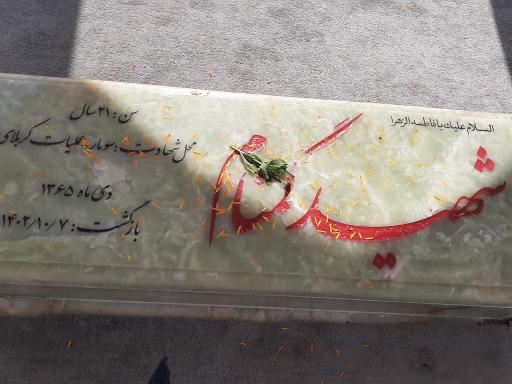 السلام علیک یا فاطمه الزهرا
شهید گمنام
سن: ۲۱ سال
محل شهادت: سومار، عملیات کربلای
دی ماه ۱۳۶۵
بازگشت: ۱۴۰۲/۱۰/۷